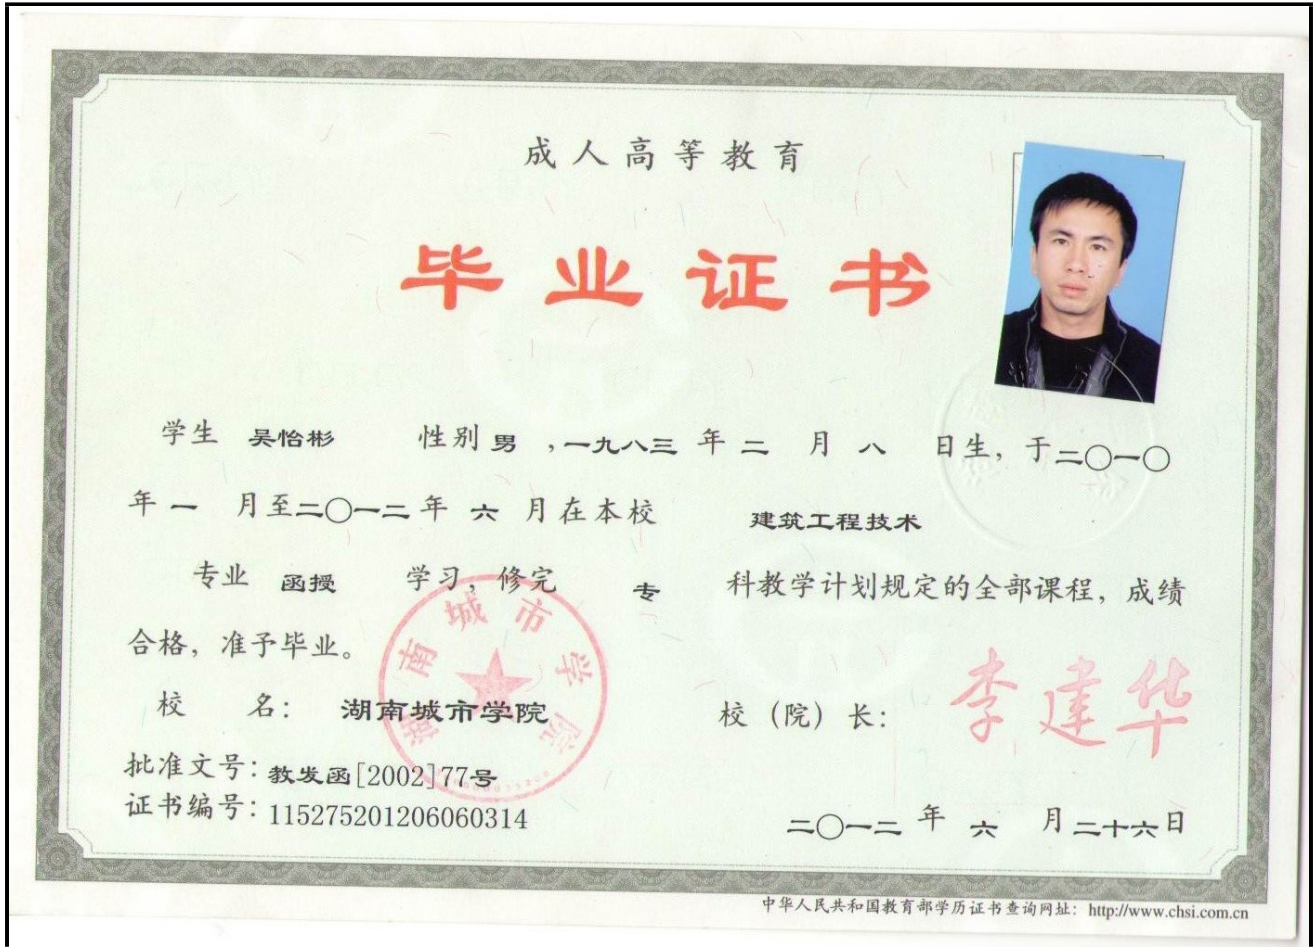 成人高等教育
毕业证书
学生 吴怡彬 性别 男 ,一九八三 年 二 月 八 日生，于二〇一〇
年 一 月至二〇一二年 六 月在本校 建筑工程技术
专业 函授 学习，修完 专 科教学计划规定的全部课程，成绩
合格，准予毕业。
湖南城市学院
校 名： 湖南城市学院 校（院）长： 李建华
批准文号：教发函[2002]77号
证书编号：115275201206060314
二〇一二 年 六 月二十六日
中华人民共和国教育部学历证书查询网址：http://www.chsi.com.cn